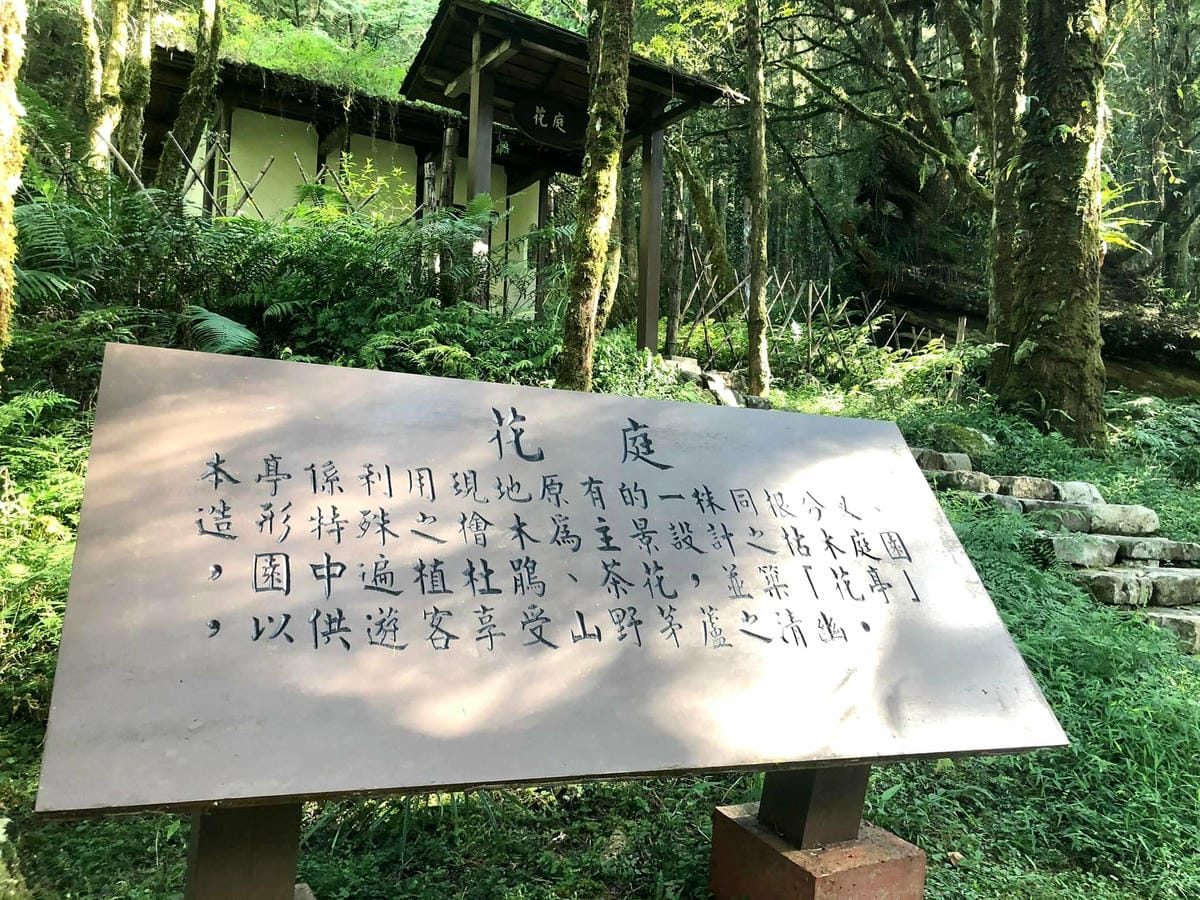 花庭
花庭
本亭係利用現地原有的一株同根分叉、
造形特殊之檜木爲主景設計之枯木庭園
，園中遍植杜鵑、茶花，並築「花亭」
，以供遊客享受山野茅蘆之清幽。